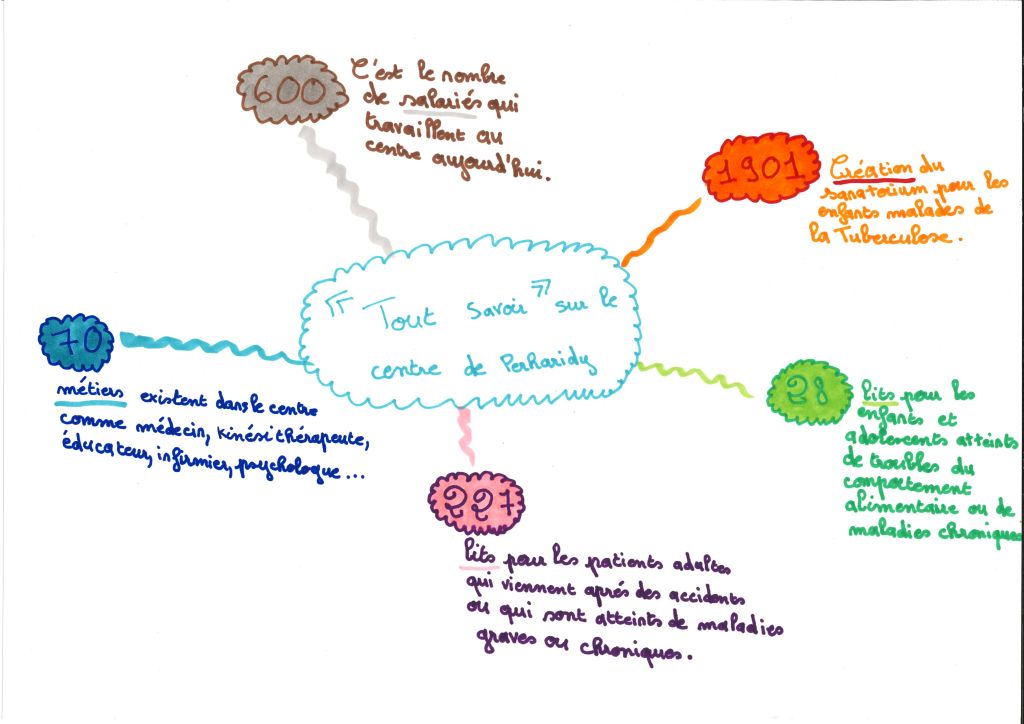 « Tout savoir » sur le
centre de Perharidy
600
C'est le nombre
de salariés qui
travaillent au
centre aujourd'hui.
1901
Création du
sanatorium pour les
enfants malades de
la Tuberculose.
28
lits pour les
enfants et
adolescents atteints
de troubles du
comportement
alimentaire ou de
maladies chroniques
227
lits pour les patients adultes
qui viennent aprés des accidents
ou qui sont atteints de maladies
graves ou chroniques.
70
métiers existent dans le centre
comme médecin, kinésithérapeute,
éducateur, infirmier, psychologue...